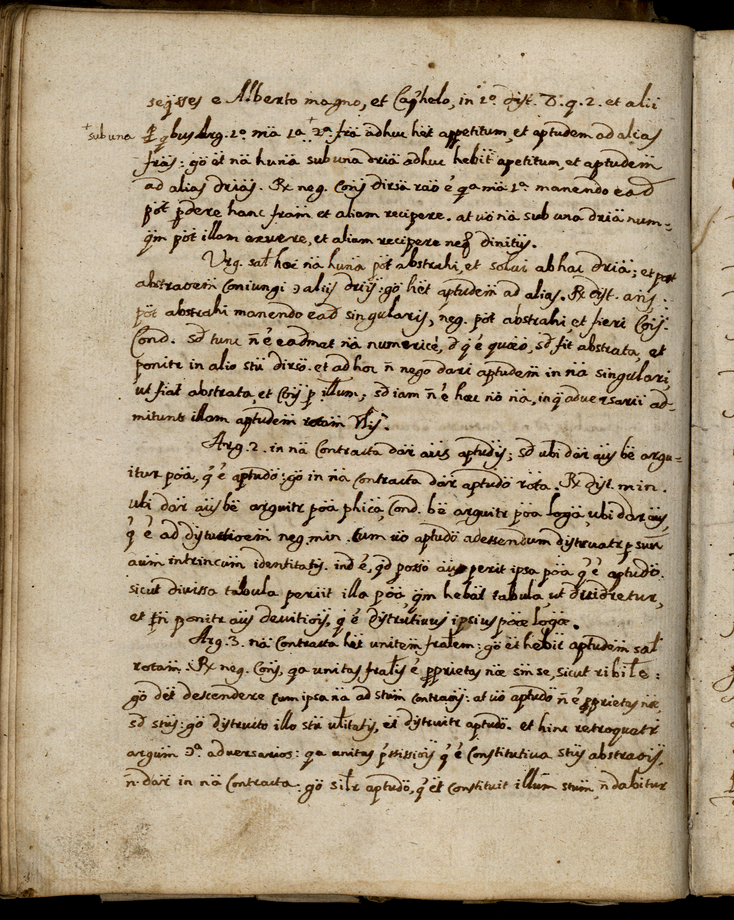 e Alberto magno, et in 1º dist. D. q. 2. et alii
+ sub una
Arg. 1º ma 1a + 2a. fra adhuc het appetitum, et aptudem ad alias
fras: go et na huna sub una dria adhuc hebit apetitum, et aptudem
ad alias drias. Rx neg. Cons dirsa rao é qa ma 1a. manendo ead
pot pdere hanc fram et aliam recipere. at uo na sub una dria num=
qm pot illam exuere, et aliam recipere neq diuinitus.
Vrg. salt haec na huna pot abstrahi, et solui ab hac dria; et post
abstraoem Coniungi aliis driis: go het aptudem ad alias. Rx dist. ans:
pot abstrahi manendo ead singularis, neg. pot abstrahi et fieri Cois.
Cond. sd tunc n é eadmat na numerice, sd fit abstrata, et
ponitr in alio stu dirso. et ad hoc n nego dari aptudem in na singulari
ut fiat abstrata, et Cois p illum; sd iam n é haec na, in q aduersarii ad=
mitunt illam aptudem totam
Arg. 2. in na Contracta dar actus aptudis; sd ubi dar actus be argu=
itur poa, q é aptudo: go in na contracta dar aptudo tota. Rx dist. min.
ubi dar actus be arguitr poa phica, Cond. be arguitr poa loga, ubi dar actus,
q é ad neg. min. Cum uo aptudo ad essendum p suu
actum intrincum identitatis. ind é, qd posito actu perit ipsa poa q é aptudo.
sicut diuissa tabula periit illa poa qm hebat tabula ut diuidretur,
et ponitr actus q é distrutiuus ipsius poae logae.
Arg. 3. na Contracta het unitem fralem: go et hebit aptudem salt
totam. Rx neg. Cons, qa unitas fralis é pprietas nae sm se, sicut ribile:
go det descendere cum ipsa na ad stum Contraois: at uo aptudo n é pprietas nae,
sd stus: go distructo illo stu ulitatis, et distruitr aptudo. et hinc retroquatr
argum aduersarios: qa unitas q é Constitutiua stus abstraois,
n dari in na Contracta: go silr aptudo, q et constituit illum stum, n dabitur